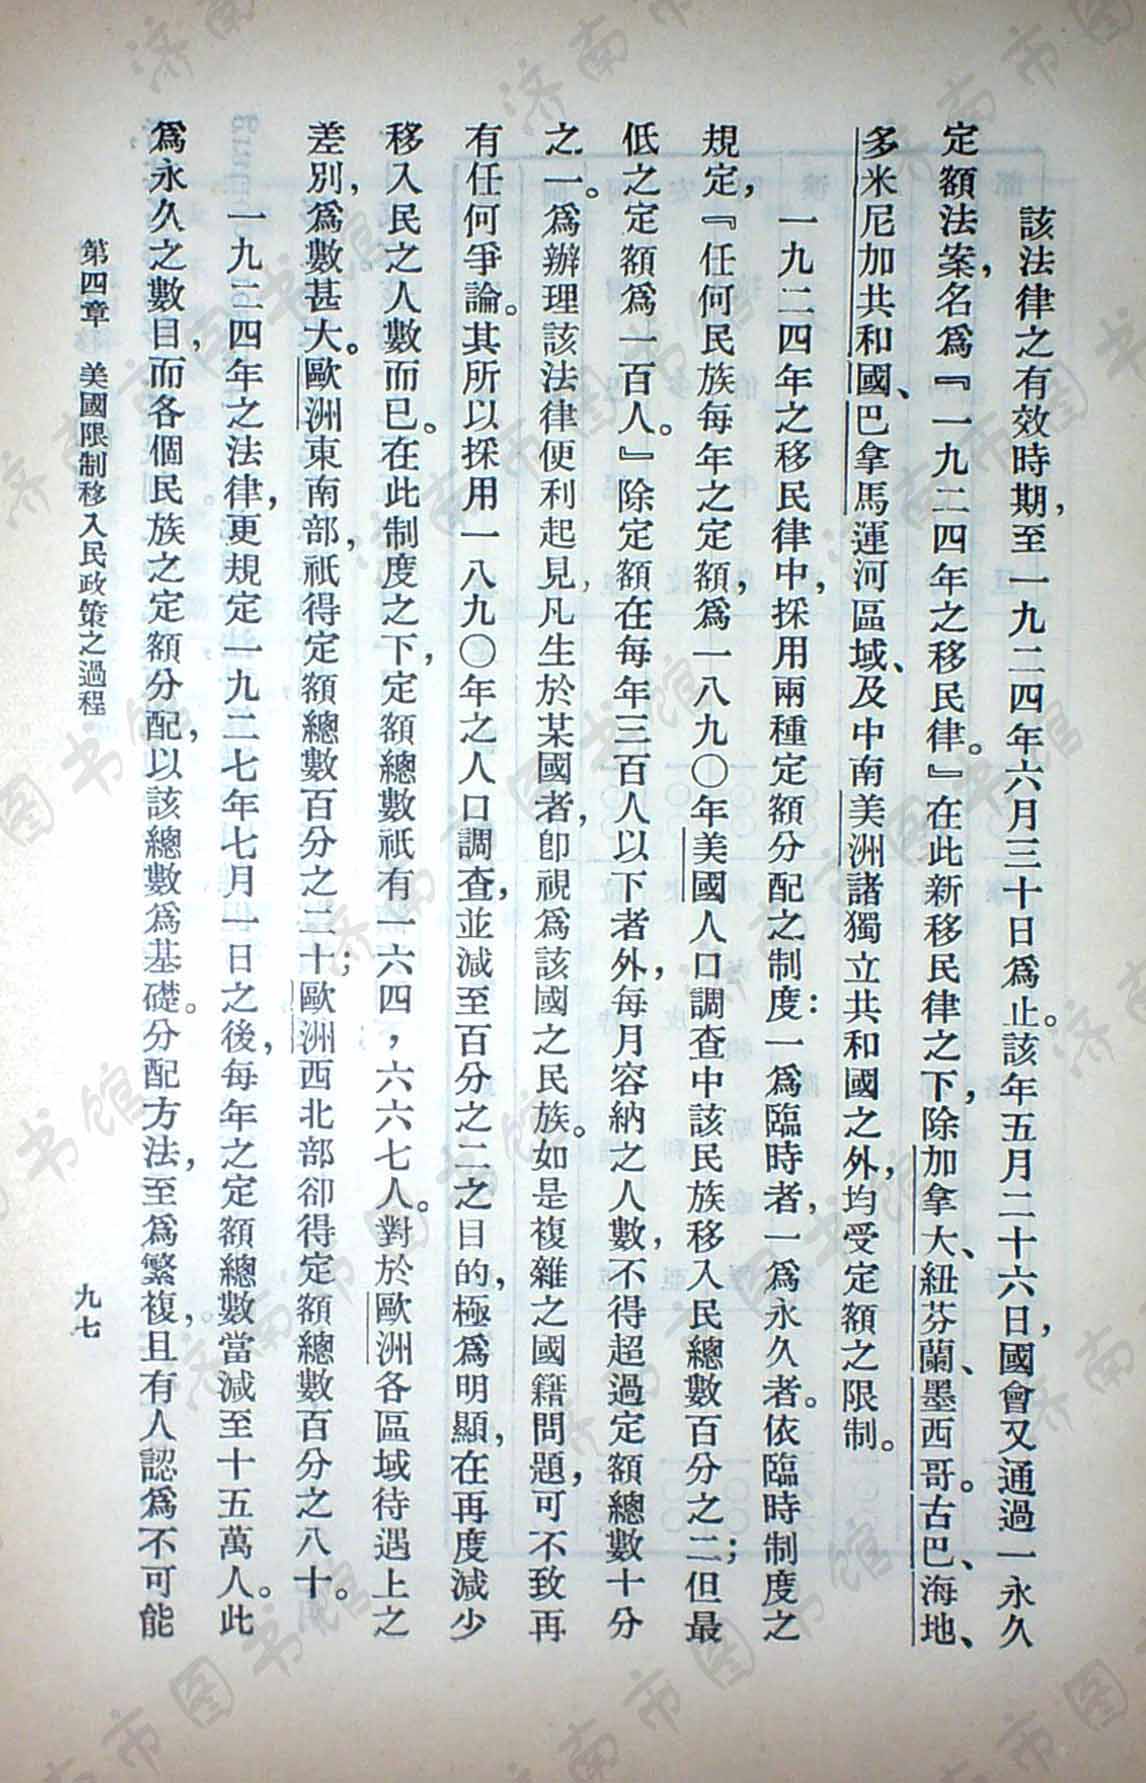 該法律之有效時期，至一九二四年六月三十日爲止。該年五月二十六日，國會又通過一永久
定額法案，名爲『一九二四年之移民律。』在此新移民律之下，除加拿大、紐芬蘭、墨西哥。古巴、海地、
多米尼加共和國、巴拿馬運河區域、及中南美洲諸獨立共和國之外，均受定額之限制。
一九二四年之移民律中，採用兩種定額分配之制度：一爲臨時者，一爲永久者。依臨時制度之
規定，『任何民族每年之定額，爲一八九〇年美國人口調查中該民族移入民總數百分之二；但最
低之定額爲一百人。』除定額在每年三百人以下者外，每月容納之人數，不得超過定額總數十分
之一。爲辦理該法律便利起見，凡生於某國者，卽視爲該國之民族。如是複雜之國籍問題，可不致再
有任何爭論。其所以採用一八九〇年之人口調查，並減至百分之二之目的，極爲明顯，在再度減少
移入民之人數而已。在此制度之下，定額總數祇有一六四，六六七人。對於歐洲各區域待遇上之
差別，爲數甚大。歐洲東南部，祇得定額總數百分之二十；歐洲西北部卻得定額總數百分之八十。
一九二四年之法律，更規定一九二七年七月一日之後，每年之定額總數當減至十五萬人。此
爲永久之數目，而各個民族之定額分配，以該總數爲基礎。分配方法，至爲繁複，且有人認爲不可能
第四章　美國限制移入民政策之過程
九七
济南市图书馆